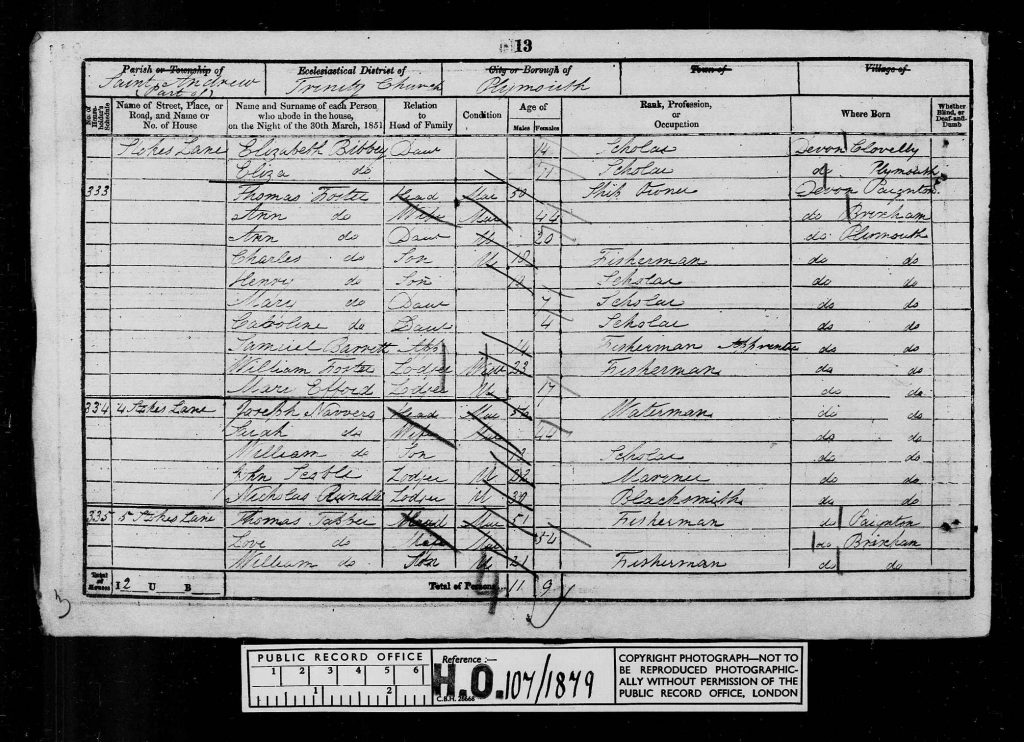 13
Parish or Township of Ecclesiastical District of City or Borough of Town of Village of
Saint Andrew Trinity Church Plymouth
(Part of)
No. of Householder's Schedule Name of Street, Place, or Road, and Name or No. of House Name and Surname of each Person who abode in the house, on the Night of the 30th March, 1851 Relation to Head of Family Condition Age of Males Females Rank, Profession, or Occupation Where Born Whether Blind, or Deaf-and-Dumb
Stokes Lane Elizabeth Bibbey Daur 14 Scholar Devon Clovelly
Eliza do 11 Scholar do Plymouth
333 Thomas Foster Head Mar 50 Ship Owner Devon Paignton
Ann do Wife Mar 44 do Brixham
Ann do Daur U 20 do Plymouth
Charles do Son U 18 Fisherman do do
Henry do Son Scholar do do
Mary do Daur 7 Scholar do do
Caroline do Daur 4 Scholar do do
Samuel Barrett App 14 Fisherman Apprentice do do
William Foster Lodger 23 Fisherman do do
Mary Efford Lodger U 17 do do
334 4 Stokes Lane Joseph Navvers Head Mar Waterman do do
do Wife Mar 44 do do
William do Son Scholar do do
John Lodger U 22 Mariner do do
Nicholas Rundle Lodger U 30 Blacksmith do do
335 5 Stokes Lane Thomas Tabber Head Mar 51 Fisherman do Paignton
Love do Wife Mar 54 do Brixham
William do Son U 21 Fisherman do do
Total of Houses I 2 U B Total of Persons 11 9
PUBLIC RECORD OFFICE
1 2 3 4 5 6
1 2
Reference :—
H.O. 107/1879
C.B.H. 28666
COPYRIGHT PHOTOGRAPH—NOT TO
BE REPRODUCED PHOTOGRAPHIC-
ALLY WITHOUT PERMISSION OF THE
PUBLIC RECORD OFFICE, LONDON